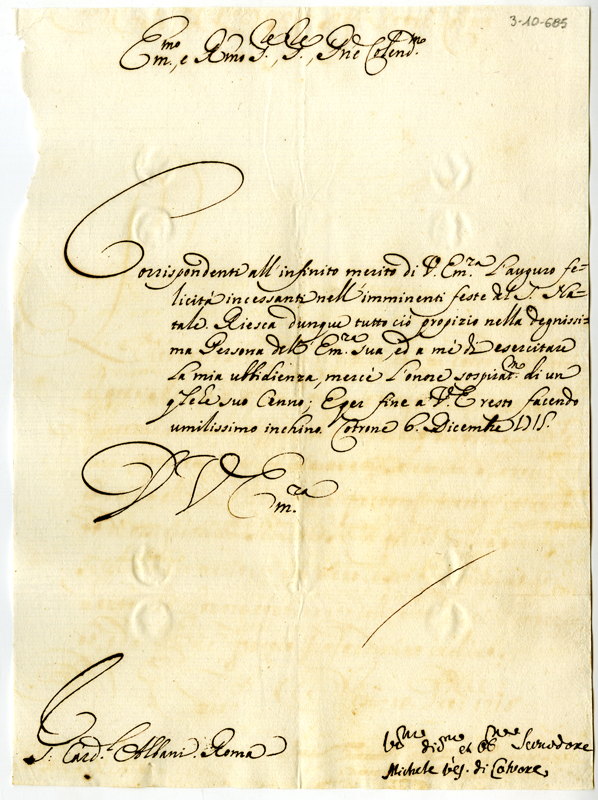 3-10-685
Em.mo, e Rmo S.re, S.re, Pne Colend.mo
Corrispondenti all' infinito merito di V. Em.ra L'auguro fe-
licità incessanti nell' imminenti feste del S. Na-
tale. Riesca dunque tutto ciò propizio nella degnissi-
ma Persona dell' Em.ra sua, ed a mè di esercitare
la mia ubbidienza, mercè l'onore sospirat.mo di un
suo Cenno; E per fine a V.E. resto facendo
umilissimo inchino. Cotrone 6. Dicembre 1715.
D V Em.ra
S: Card.l Albani. Roma
V.mo di.mo et Ob.mo Servidore
Michele Ves. di Cotrone